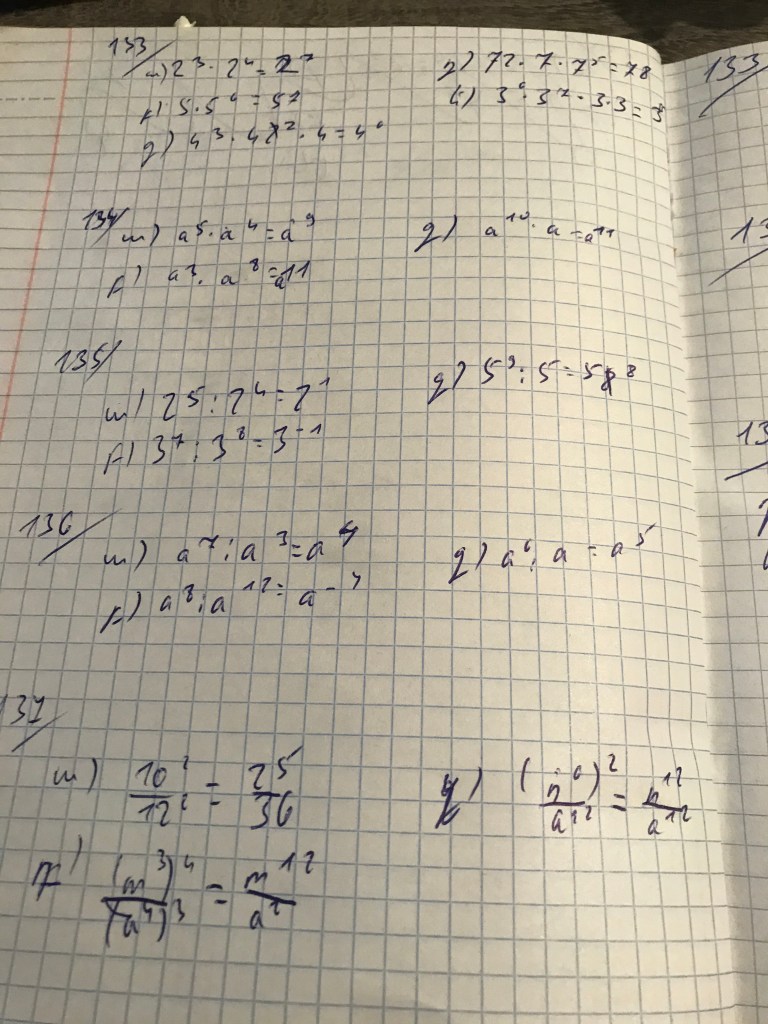 133/
ա) 2³ · 2⁴ = 2⁷
բ) 5 · 5⁶ = 5⁷
գ) 4³ · 4² · 4 = 4⁶
դ) 7² · 7 · 7⁵ = 7⁸
133
134/
ա) a⁵ · a⁴ = a⁹
բ) a³ · a⁸ = a¹¹
գ) a¹⁰ · a = a¹¹
135/
ա) 2⁵ : 2⁴ = 2¹
բ) 3⁷ : 3⁸ = 3⁻¹
գ) 5⁹ : 5 = 5⁸
136/
ա) a⁷ : a³ = a⁴
բ) a⁸ : a¹² = a⁻⁴
գ) a⁶ : a = a⁵
137/
ա) 10²/12² = 25/36
բ) (m³)⁴/(a⁴)³ = m¹²/a²